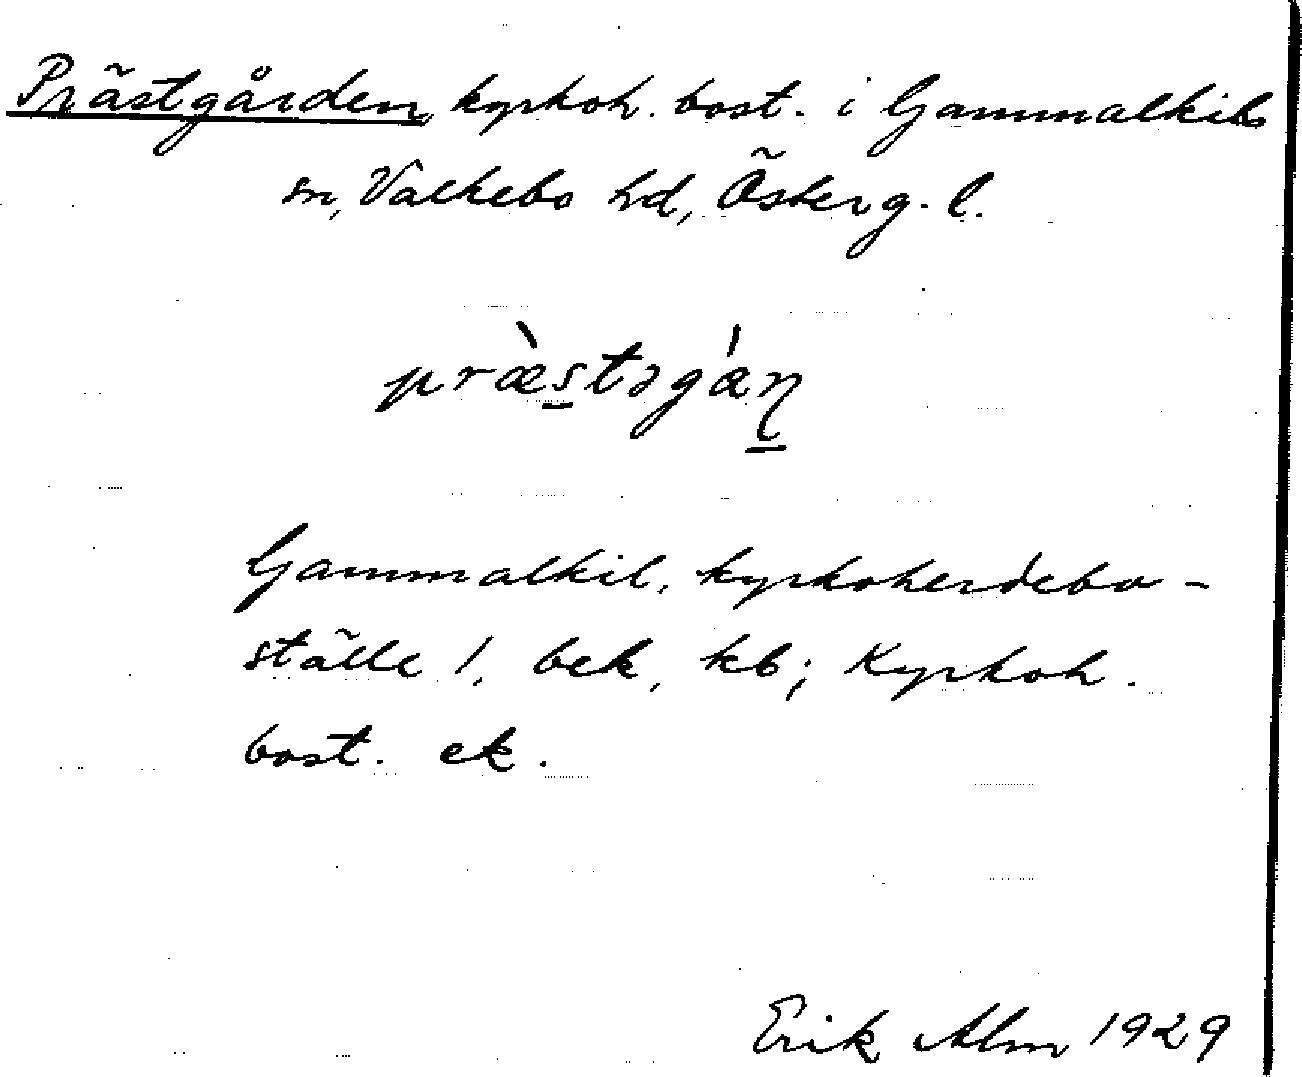 Prästgården, kyrkoh. bost. i Gammalkils
sn, Valkebo hd, Österg. l.
præ̀stəgán̥
Gammalkil, kyrkoherdebo-
ställe 1, bek, kb; Kyrkoh.
bost. ek.
Erik Alm 1929